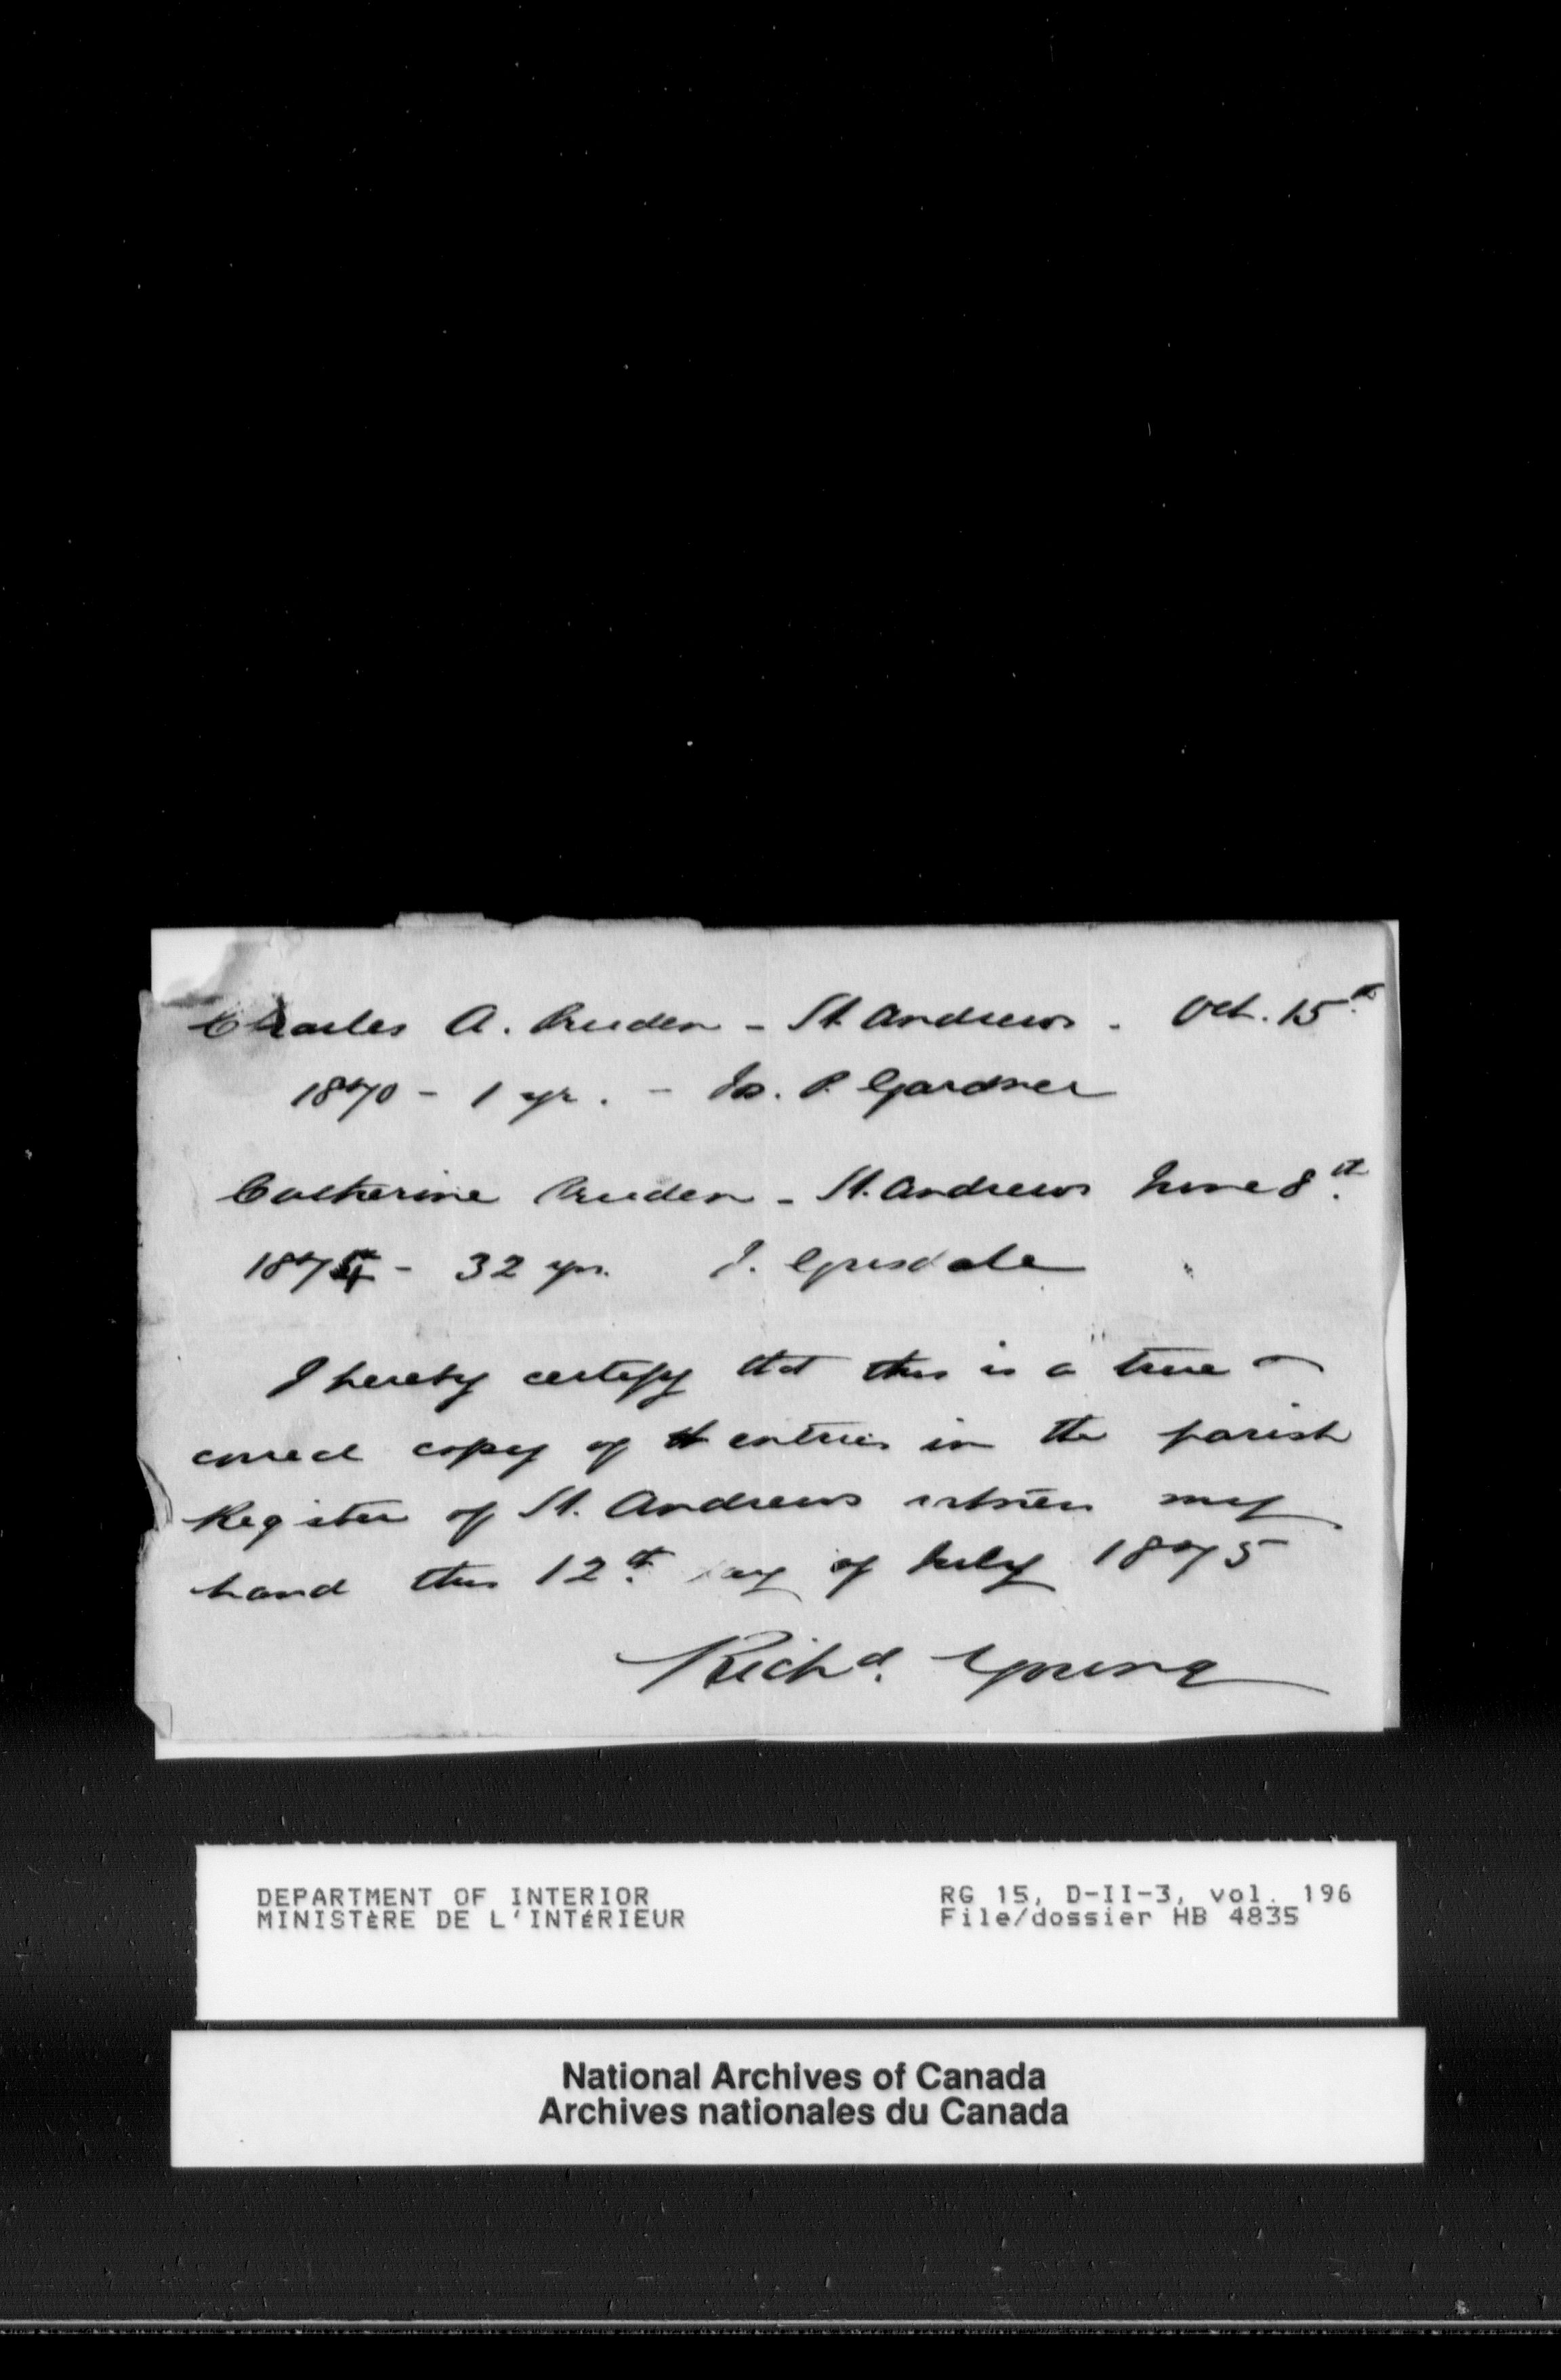 Charles A. Pruden - St. Andrews - Oct. 15th
1870 - 1 yr. - Jo. P. Gardner
Catherine Pruden - St. Andrews June 8th
1874 - 32 yrs. J. Grisdale
I hereby certify that this is a true &
correct copy of entries in the parish
Register of St. Andrews witness my
hand this 12th day of July 1875
Richd. Young
DEPARTMENT OF INTERIOR
MINISTÈRE DE L'INTÉRIEUR
RG 15, D-II-3, vol. 196
File/dossier HB 4835
National Archives of Canada
Archives nationales du Canada